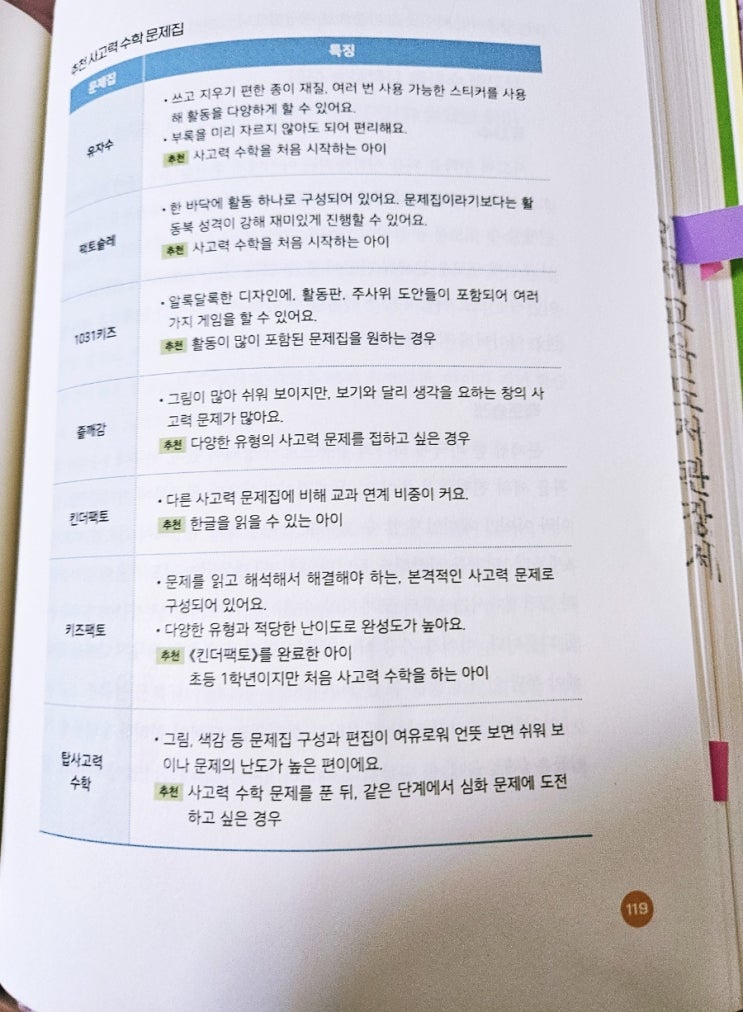 추천 사고력 수학 문제집
문제집
특징
유자수
• 쓰고 지우기 편한 종이 재질, 여러 번 사용 가능한 스티커를 사용
해 활동을 다양하게 할 수 있어요.
• 부록을 미리 자르지 않아도 되어 편리해요.
추천 사고력 수학을 처음 시작하는 아이
팩토슐레
• 한 바닥에 활동 하나로 구성되어 있어요. 문제집이라기보다는 활
동북 성격이 강해 재미있게 진행할 수 있어요.
추천 사고력 수학을 처음 시작하는 아이
1031키즈
• 알록달록한 디자인에, 활동판, 주사위 도안들이 포함되어 여러
가지 게임을 할 수 있어요.
추천 활동이 많이 포함된 문제집을 원하는 경우
즐깨감
• 그림이 많아 쉬워 보이지만, 보기와 달리 생각을 요하는 창의 사
고력 문제가 많아요.
추천 다양한 유형의 사고력 문제를 접하고 싶은 경우
킨더팩토
• 다른 사고력 문제집에 비해 교과 연계 비중이 커요.
추천 한글을 읽을 수 있는 아이
키즈팩토
• 문제를 읽고 해석해서 해결해야 하는, 본격적인 사고력 문제로
구성되어 있어요.
• 다양한 유형과 적당한 난이도로 완성도가 높아요.
추천 《킨더팩토》를 완료한 아이
초등 1학년이지만 처음 사고력 수학을 하는 아이
탑사고력
수학
• 그림, 색감 등 문제집 구성과 편집이 여유로워 언뜻 보면 쉬워 보
이나 문제의 난도가 높은 편이에요.
추천 사고력 수학 문제를 푼 뒤, 같은 단계에서 심화 문제에 도전
하고 싶은 경우
119